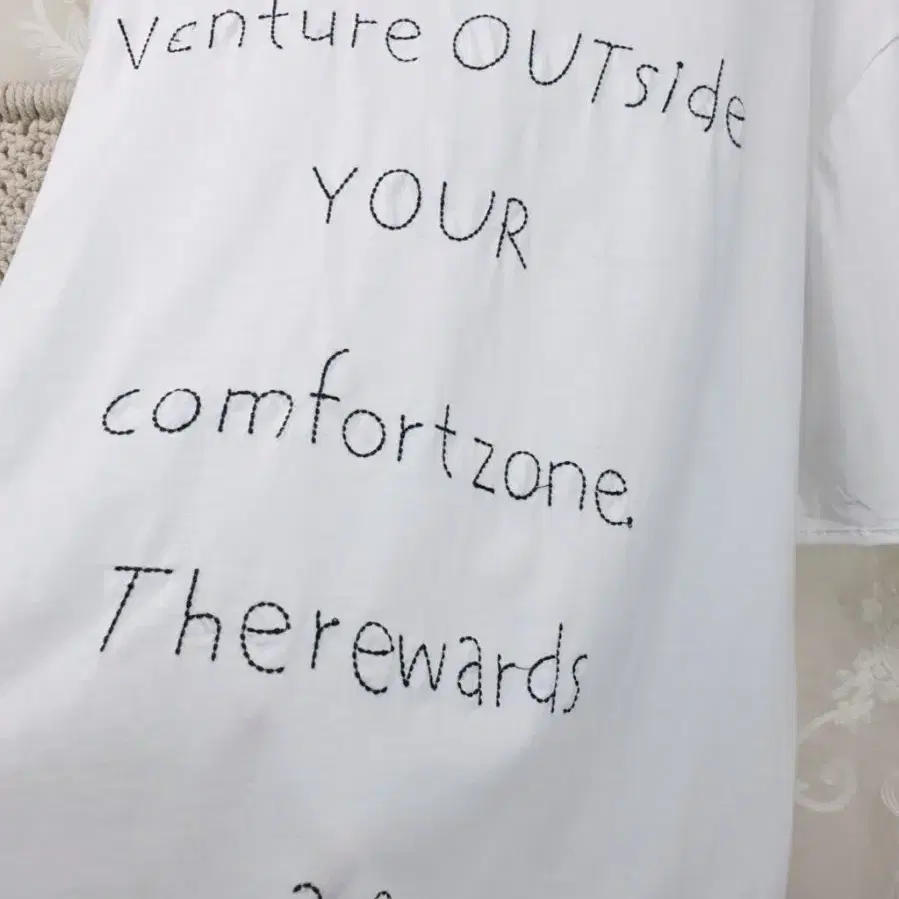 Venture OUTside
YOUR
comfortzone.
Therewards